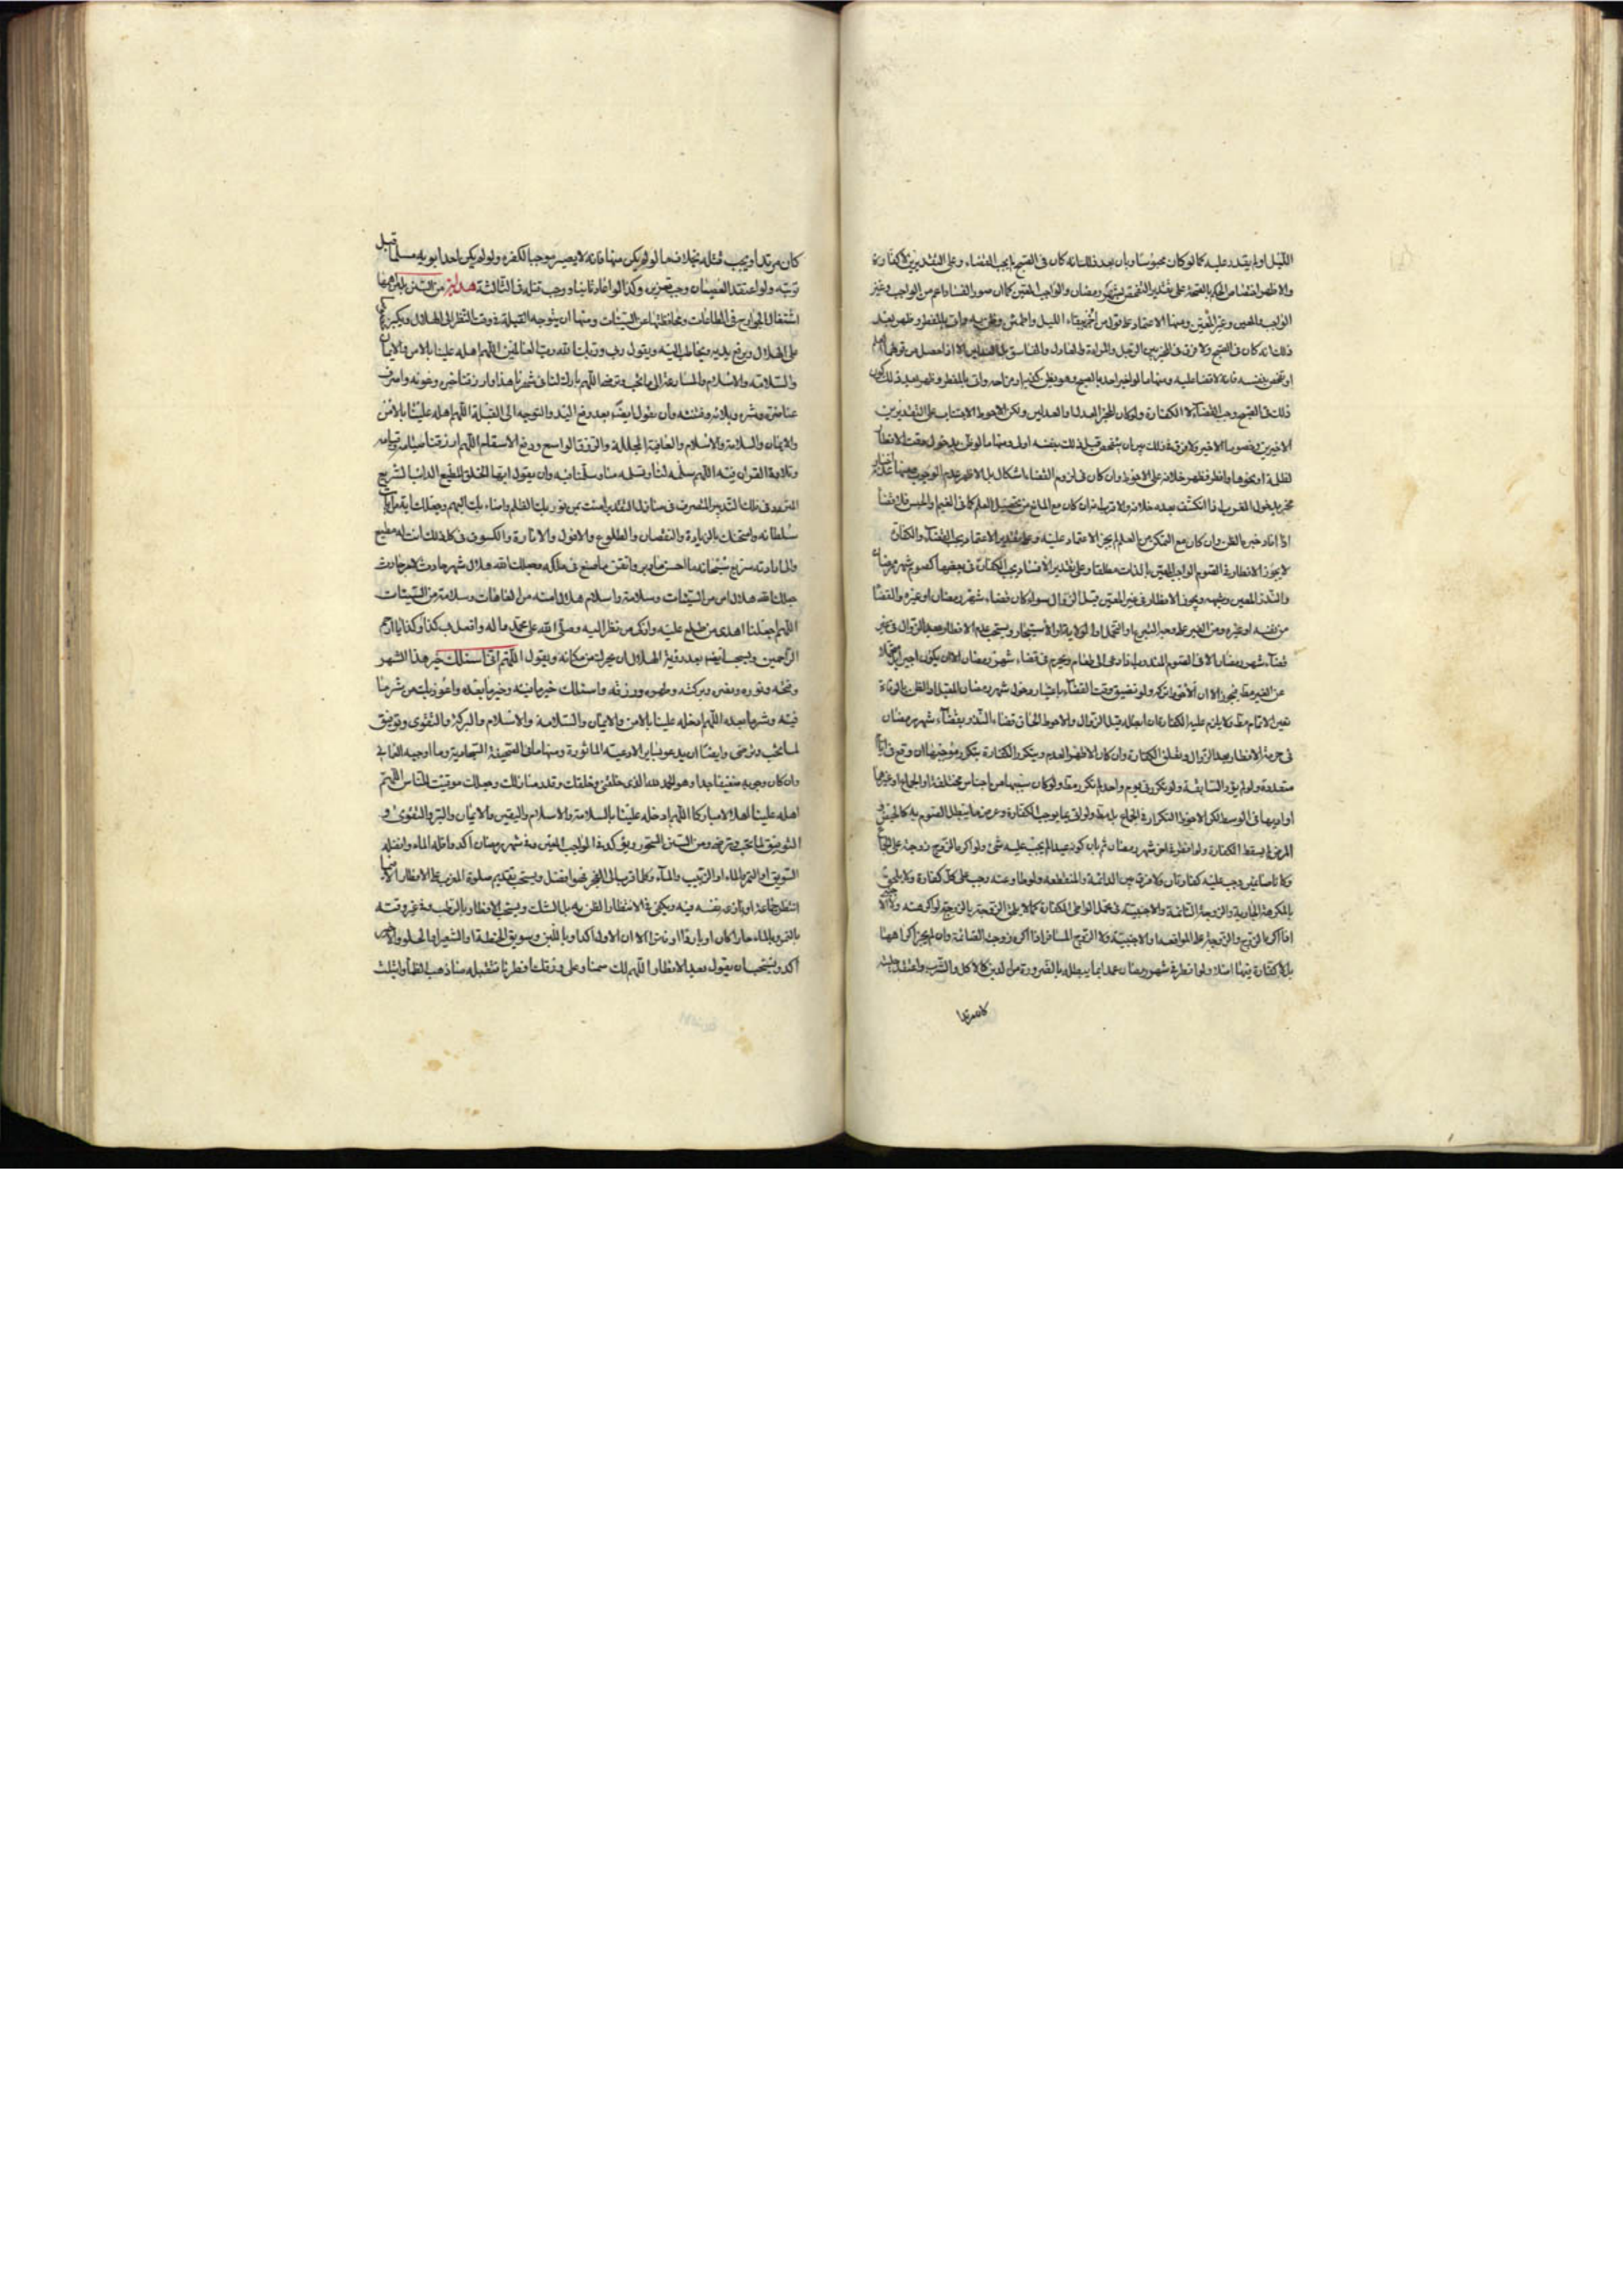 الليل اولم يقدر عليه كما لو كان محبوسا وبان بعد ذلك انه كان فى الصبح لم يجب القضاء وعلى التقديرين لا كفارة
والاظهر اختصاص الحكم بالصحة على تقدير التفحص بشهر رمضان والواجب المعين كما ان صور القضاء اعم من الواجب وغير
الواجب والمعين وغير المعين ومنها الاعتماد على قول من اخبر ببقاء الليل واطمئن وظن به واتى بالمفطر وظهر بعد
ذلك انه كان فى الصبح ولا فرق فى المخبر بين الرجل والمراة والعادل والفاسق بل العدلين الا اذا حصل من قولهما العلم
او تفحص بنفسه فانه لا قضا عليه ومنها ما لو اخبر احد بالصبح وهو يظن كذبه او مزاحه واتى بالمفطر وظهر بعد ذلك كون
ذلك فى الصبح وجب القضاء لا الكفارة ولو كان المخبر العدل او العدلين ولكن الاحوط الاجتناب على التقديرين
الاخيرين خصوصا الاخير ولا فرق فى ذلك بين ان يتفحص قبل ذلك بنفسه اولا ومنها ما لو ظن بدخول وقت الافطار
لظلمة او نحوها وافطر فظهر خلافه على الاحوط وان كان فى لزوم القضاء اشكال بل الاظهر عدم الوجوب ومنها اخبار
مخبر بدخول المغرب اذا انكشف بعده خلافه والاقرب انه ان كان مع المانع من تحصيل العلم كما فى الغيم والحبس فلا قضاء
اذا افاد خبره الظن وان كان مع التمكن من العلم لم يجز الاعتماد عليه وعلى تقدير الاعتماد يجب القضاء والكفارة
لا يجوز الافطار فى الصوم الواجب المعين بالذات مطلقا وعلى تقدير الافساد يجب الكفارة فى بعضها كصوم شهر رمضان
والنذر المعين وشبهه ويجوز الافطار فى غير المعين قبل الزوال سواء كان قضاء شهر رمضان او غيره والقضا
من نفسه او غيره ومن الغير على وجه التبرع او التحمل او الولاية او الاستيجار ويستحب عدم الافطار بعد الزوال فى غير
قضاء شهر رمضان الا فى الصوم المندوب اذا دعى الى طعام ويحرم فى قضاء شهر رمضان الا ان يكون اجيرا او متحملا
عن الغير فيجوز الا ان الاحوط تركه ولو تضيق وقت القضاء باعتبار دخول شهر رمضان المقبل او الظن بالوفاة
تعين الاتمام ولا يلزم عليه الكفارة ان ابطله قبل الزوال والاحوط الحاق قضاء النذر بقضاء شهر رمضان
فى حرمة الافطار بعد الزوال وتعلق الكفارة وان كان الاظهر العدم ويتكرر الكفارة بتكرر موجبها ان وقع فى ايام
متعددة ولو لم يؤد السابقة ولو تكرر فى يوم واحد لم تكرر ولو كان سببها من اجناس مختلفة او الجماع او غيرها
او اديها فى الوسط لكن الاحوط التكرار فى الجماع ولو اتى بما يوجب الكفارة وعرض ما يبطل الصوم به كالحيض
المرض لم يسقط الكفارة ولو افطر فى اخر شهر رمضان ثم بان كونه عيدا لم يجب عليه شئ ولو اكره الزوج زوجته على الجماع
وكانا صائمين وجب عليه كفارتان ولا فرق بين الدائمة والمنقطعة ولو طاوعته وجب على كل كفارة ولا يلحق
بالمكرهة الجارية والزوجة النائمة والاجنبية فى تحمل الواطى الكفارة كما لا يلحق الزوجة بالزوج لو اكرهته ولا
اذا اكره الزوج والزوجة على المواقعة ولا الاجنبية ولا الزوج المسافر اذا اكره زوجته الصائمة وان لم يجز اكراهها
بل لا كفارة فيها اصلا ولو افطر فى شهر رمضان عمدا بما يبطله بالضرورة من الدين كالاكل والشرب واعتقد حليته
كان مرتدا
كان مرتدا ويجب قتله بخلاف ما لو لم يكن منها فانه لا يصير موجبا لكفره ولو لم يكن احد ابويه مسلما قبل
توبته ولو اعتقد العصيان وجب تعزيره وكذا لو اعاد ثانيا ووجب قتله فى الثالثة هداية من السنن بل اهمها
اشتغال الجوارح فى الطاعات ومحافظتها عن السيئات ومنها ان يتوجه القبلة فى وقت النظر الى الهلال ويكبر
على الهلال ويرفع يديه ويخاطب اليه ويقول ربى وربك الله رب العالمين اللهم اهله علينا بالامن والايمان
والسلامة والاسلام والمسارعة الى ما تحب وترضى اللهم بارك لنا فى شهرنا هذا وارزقنا خيره وعونه واصرف
عنا ضره وشره وبلائه وفتنته وان يقول ايضا بعد رفع اليد والتوجه الى القبلة اللهم اهله علينا بالامن
والايمان والسلامة والاسلام والعافية المجللة والرزق الواسع ودفع الاسقام اللهم ارزقنا صيامه وقيامه
وتلاوة القران فيه اللهم سلمه لنا وتسلمه منا وسلمنا فيه وان يقول ايها الخلق المطيع الدائب السريع
المتردد فى فلك التدبير المتصرف فى منازل التقدير امنت بمن نور بك الظلم واضاء بك البهم وجعلك اية من ايات
سلطانه وامتحنك بالزيادة والنقصان والطلوع والافول والانارة والكسوف فى كل ذلك انت له مطيع
والى ارادته سريع سبحانه ما احسن ما دبر واتقن ما صنع فى ملكه وجعلك الله هلال شهر حادث لامر حادث
جعلك الله هلال امن من السيئات وسلامة واسلام هلال امنة من العاهات وسلامة من السيئات
اللهم اجعلنا اهدى من طلع عليه وازكى من نظر اليه وصلى الله على محمد واله وافعل بى كذا وكذا يا ارحم
الراحمين ويستحب ايضا بعد رؤية الهلال ان يحرك من مكانه ويقول اللهم انى اسئلك خير هذا الشهر
وفتحه ونوره ونصره وبركته وطهوره ورزقه واسئلك خير ما فيه وخير ما بعده واعوذ بك من شر ما
فيه وشر ما بعده اللهم ادخله علينا بالامن والايمان والسلامة والاسلام والبركة والتقوى وتوفيق
لما تحب وترضى وايضا ان يدعو بساير الادعية الماثورة ومنها ما فى الصحيفة السجادية وما اوجبه العمانى
وان كان وجوبه ضعيفا جدا وهو الحمد لله الذى خلقنى وخلقك وقدر منازلك وجعلك مواقيت للناس اللهم
اهله علينا اهلالا مباركا اللهم ادخله علينا بالسلامة والاسلام واليقين والايمان والبر والتقوى و
التوفيق لما تحب وترضى ومن السنن السحور ويؤكد فى الواجب المعين وفى شهر رمضان اكد واقله الماء وافضله
السويق او التمر والماء او الزبيب والماء وكلما قرب الى الفجر فهو افضل ويستحب تقديم صلوة المغرب على الافطار الا
انتظره جماعة او نازعه نفسه فيه ويكفى فى الافطار الظن به بل الشك ويستحب الافطار بالرطب وفى غير وقته
بالتمر وبالماء حارا كان او باردا او فترا الا ان الاول اكد وباللبن وسويق الحنطة او الشعير او الحلو والاخير
اكد ويستحب ان يقول بعد الافطار اللهم لك صمنا وعلى رزقك افطرنا فتقبله منا ذهب الظمأ وابتلت